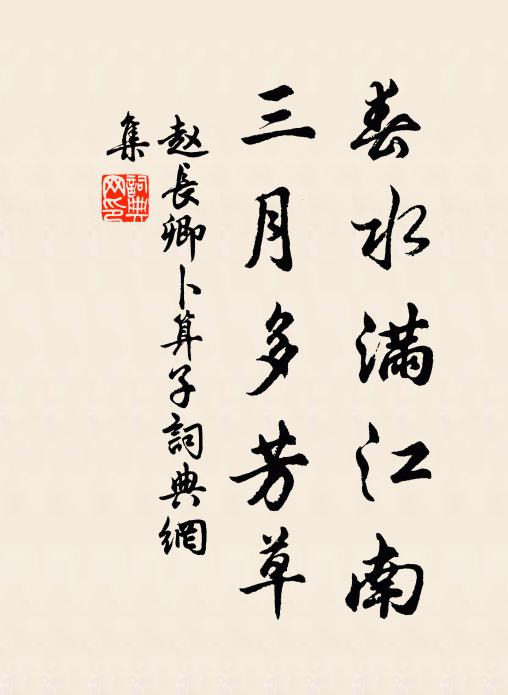 春水满江南
三月多芳草
赵長卿卜算子詞典網
集
詞典網印